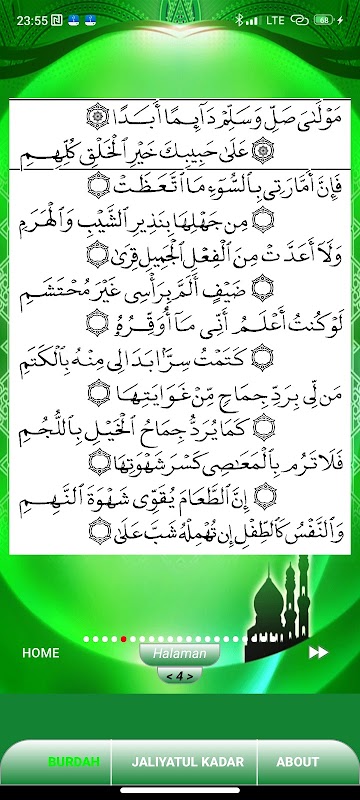 23:55 LTE 68
مَوْلَايَ صَلِّ وَسَلِّمْ دَآئِمًا أَبَدًا
عَلَى حَبِيبِكَ خَيْرِ الْخَلْقِ كُلِّهِمِ
فَإِنَّ أَمَّارَتِي بِالسُّوٓءِ مَا اتَّعَظَتْ
مِن جَهْلِهَا بِنَذِيرِ الشَّيْبِ وَالْهَرَمِ
وَلَا أَعَدَّتْ مِنَ الْفِعْلِ الْجَمِيلِ قِرٰى
ضَيْفٍ أَلَمَّ بِرَأْسِي غَيْرَ مُحْتَشَمِ
لَوْ كُنتُ أَعْلَمُ أَنِّي مَا أُوَقِّرُهُ
كَتَمْتُ سِرًّا بَدَا لِي مِنْهُ بِالْكَتَمِ
مَن لِّي بِرَدِّ جِمَاحٍ مِّنْ غَوَايَتِهَا
كَمَا يُرَدُّ جِمَاحُ الْخَيْلِ بِاللُّجُمِ
فَلَا تَرُمْ بِالْمَعَاصِي كَسْرَ شَهْوَتِهَا
إِنَّ الطَّعَامَ يُقَوِّي شَهْوَةَ النَّهِمِ
وَالنَّفْسُ كَالطِّفْلِ إِن تُهْمِلْهُ شَبَّ عَلَى
HOME Halaman
< 4 >
BURDAH JALIYATUL KADAR ABOUT